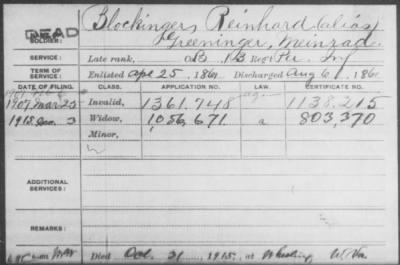 DEAD
SOLDIER: Blockinger, Reinhard (alias)
Greeninger, Meinrad
SERVICE: Late rank, B, Reg't Inf
TERM OF SERVICE: Enlisted Apr 25, 1861 Discharged Aug 1861
DATE OF FILING. CLASS. APPLICATION NO. LAW. CERTIFICATE NO.
1907 Mar 25 Invalid, 1361,748 1138,215
Widow, 1,056,671 a 803,370
Minor,
ADDITIONAL SERVICES:
REMARKS:
Died Oct. 21, 1915, at Wheeling, W.Va.